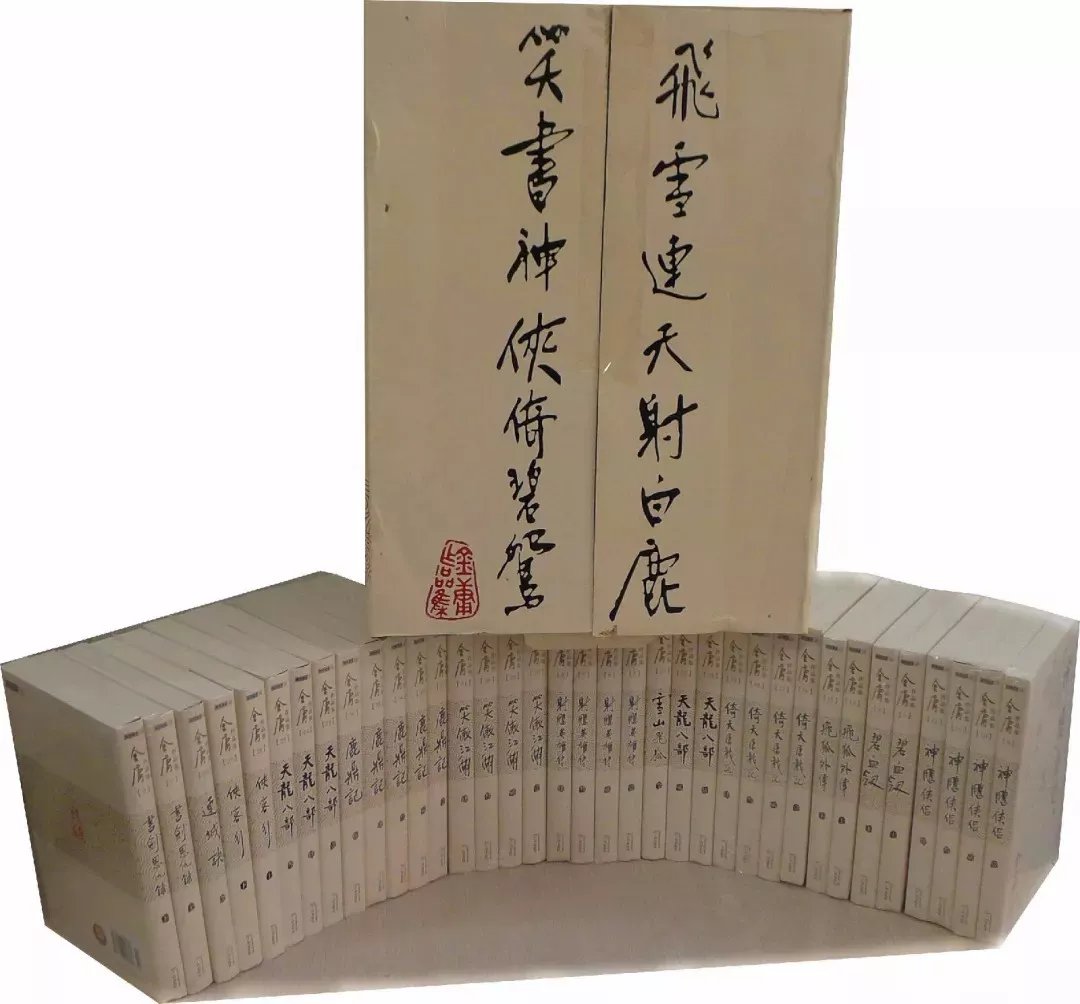 飛雪連天射白鹿
笑書神俠倚碧鴛
金庸作品集
金庸 書劍恩仇錄
金庸 書劍恩仇錄
金庸 連城訣
金庸 俠客行
金庸 俠客行
金庸 天龍八部
金庸 天龍八部
金庸 天龍八部
金庸 鹿鼎記
金庸 鹿鼎記
金庸 鹿鼎記
金庸 鹿鼎記
金庸 鹿鼎記
金庸 笑傲江湖
金庸 笑傲江湖
金庸 笑傲江湖
金庸 笑傲江湖
金庸 射鵰英雄傳
金庸 射鵰英雄傳
金庸 射鵰英雄傳
金庸 射鵰英雄傳
金庸 雪山飛狐
金庸 天龍八部
金庸 天龍八部
金庸 倚天屠龍記
金庸 倚天屠龍記
金庸 倚天屠龍記
金庸 倚天屠龍記
金庸 飛狐外傳
金庸 飛狐外傳
金庸 碧血劍
金庸 碧血劍
金庸 神鵰俠侶
金庸 神鵰俠侶
金庸 神鵰俠侶
金庸 神鵰俠侶